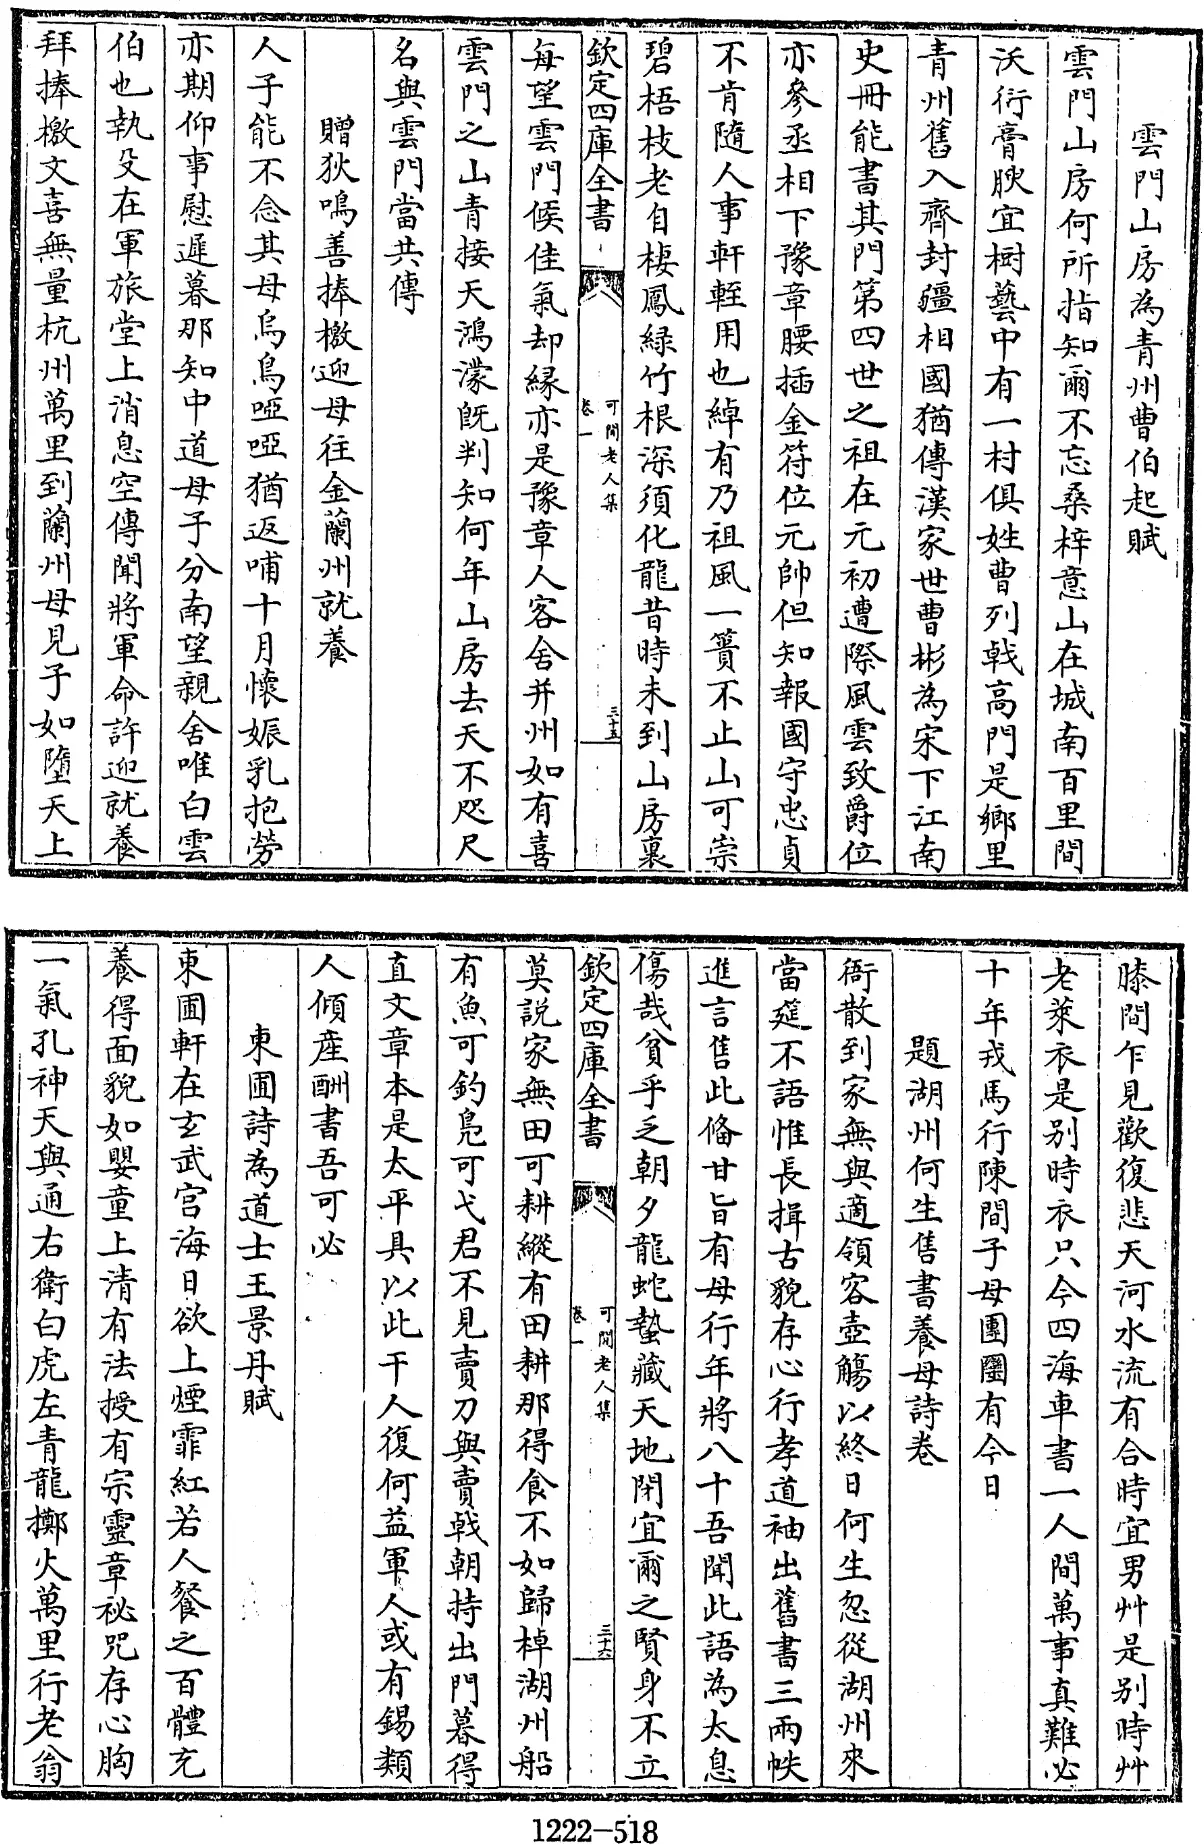 雲門山房為青州曹伯起賦
雲門山房何所指知爾不忘桑梓意山在城南百里間
沃衍膏腴宜樹藝中有一村俱姓曹列戟高門是鄉里
青州舊入齊封疆相國猶傳漢家世曹彬為宋下江南
史冊能書其門第四世之祖在元初遭際風雲致爵位
亦參丞相下豫章腰插金符位元帥但知報國守忠貞
不肯隨人事軒輊用也綽有乃祖風一簣不止山可崇
碧梧枝老自棲鳳緑竹根深須化龍昔時未到山房裏
欽定四庫全書
可閒老人集
卷一
三十五
每望雲門候佳氣却緣亦是豫章人客舍并州如有喜
雲門之山青接天鴻濛既判知何年山房去天不咫尺
名與雲門當共傳
贈狄鳴善捧檄迎母往金蘭州就養
人子能不念其母烏烏啞啞猶返哺十月懷娠乳抱勞
亦期仰事慰遲暮那知中道母子分南望親舍唯白雲
伯也執殳在軍旅堂上消息空傳聞將軍命許迎就養
拜捧檄文喜無量杭州萬里到蘭州母見子如墮天上
膝間乍見歡復悲天河水流有合時宜男艸是别時艸
老萊衣是别時衣只今四海車書一人間萬事真難必
十年戎馬行陳間子母團圞有今日
題湖州何生售書養母詩卷
衙散到家無與適領客壺觴以終日何生忽從湖州來
當筵不語惟長揖古貌存心行孝道袖出舊書三兩帙
進言售此俻甘旨有母行年將八十吾聞此語為太息
傷哉貧乎乏朝夕龍蛇蟄藏天地閉宜爾之賢身不立
欽定四庫全書
可閒老人集
卷一
三十六
莫説家無田可耕縱有田耕那得食不如歸棹湖州船
有魚可釣鳧可弋君不見賣刀與賣戟朝持出門暮得
直文章本是太平具以此干人復何益軍人或有錫類
人傾産酬書吾可必
東圃詩為道士王景丹賦
東圃軒在玄武宮海日欲上煙霏紅若人餐之百體充
養得面貌如嬰童上清有法授有宗靈章祕咒存心胸
一氣孔神天與通右衛白虎左青龍擲火萬里行老翁
1222-518